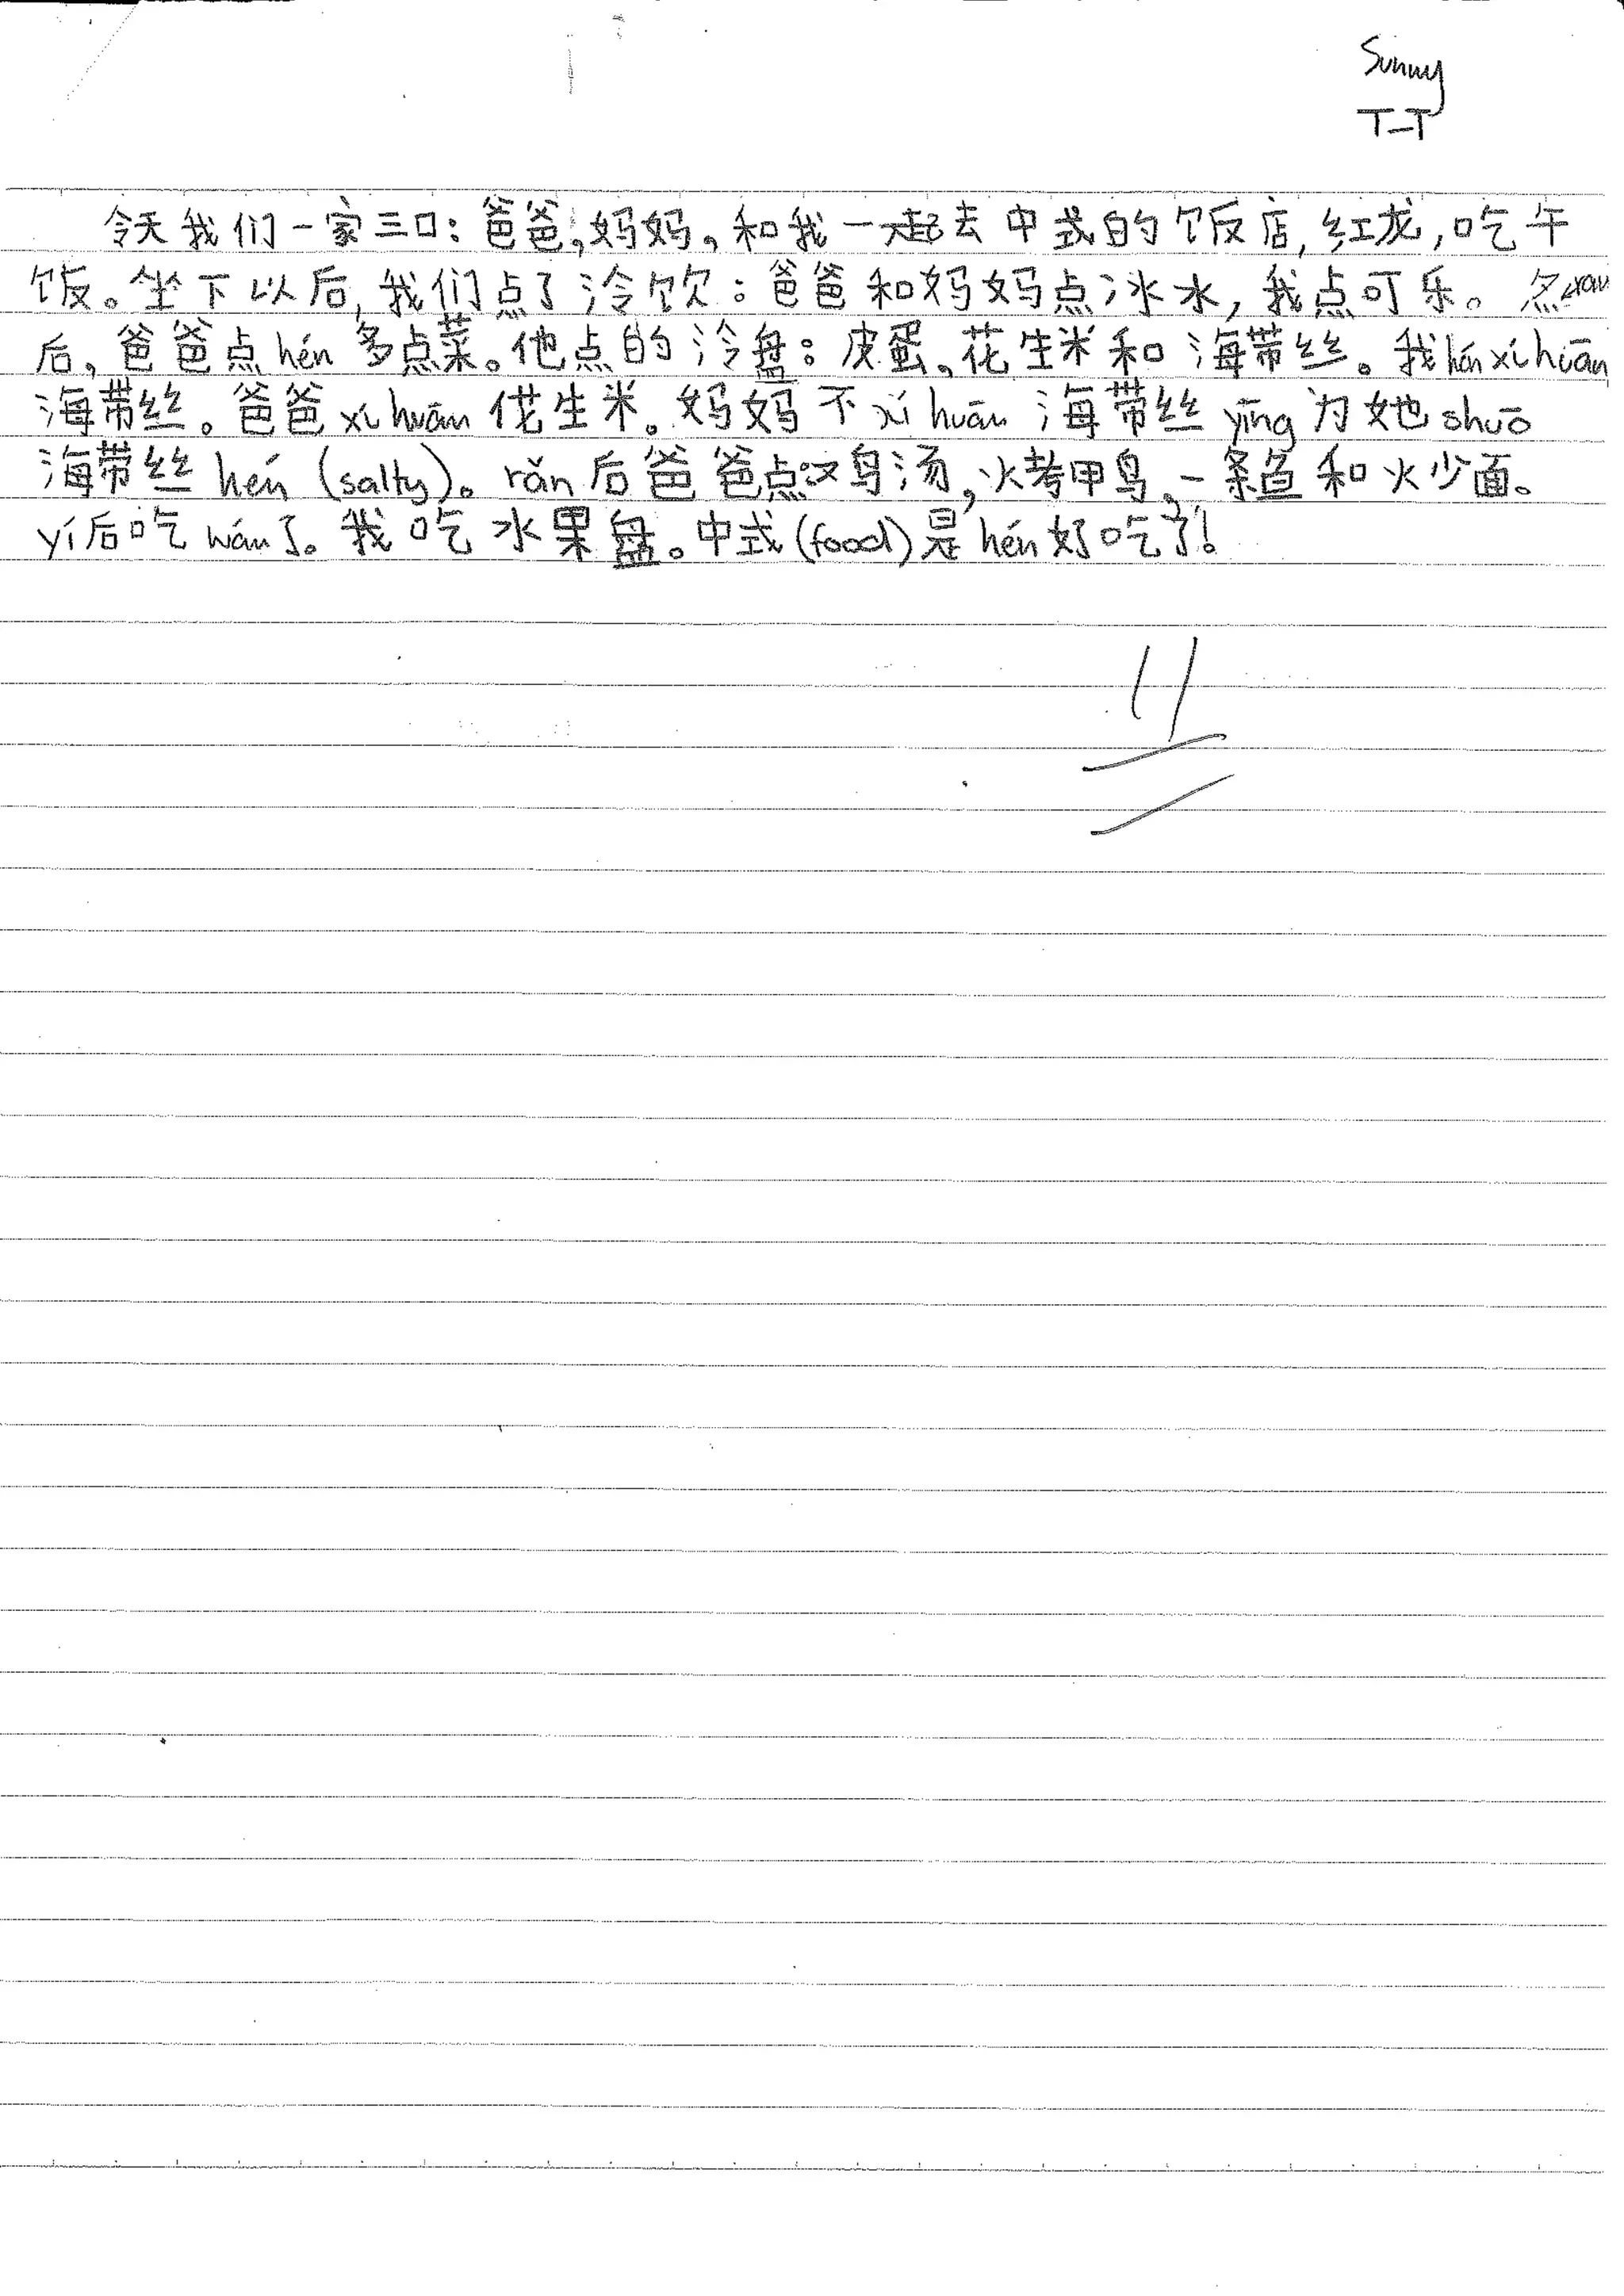 Sunny
T-T
令天我们一家三口：爸爸，妈妈，和我一起去中式的饭店，红龙，吃午
饭。坐下以后，我们点了冷饮：爸爸和妈妈点冰水，我点可乐。
后，爸爸点hén多点菜。他点的冷盘：皮蛋、花生米和海带丝。我hén xí huān
海带丝。爸爸 xí huān 花生米。妈妈不 xí huān 海带丝 yīng 为她 shuō
海带丝 hén (salty)。rǎn 后爸爸点汉鸟汤，火考甲鸟，一条鱼和火少面。
yí后吃 wán了。我吃水果盘。中式(food)是 hén 好吃了！
11